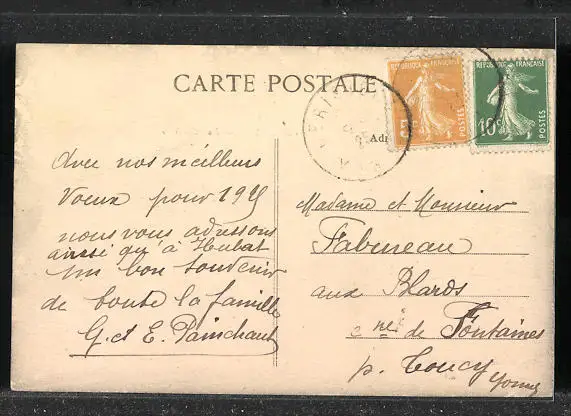 CARTE POSTALE
REPUBLIQUE FRANÇAISE
5c
POSTES
REPUBLIQUE FRANÇAISE
10c
POSTES
Adr
Avec nos meilleurs
Voeux pour 19
nous vous adressons
aussi qu'à Hubat
un bon souvenir
de toute la famille
G. et E. Painchaut
Madame et Monsieur
Fabureau
aux Blards
cne de Fontaines
p. Toucy
Yonne